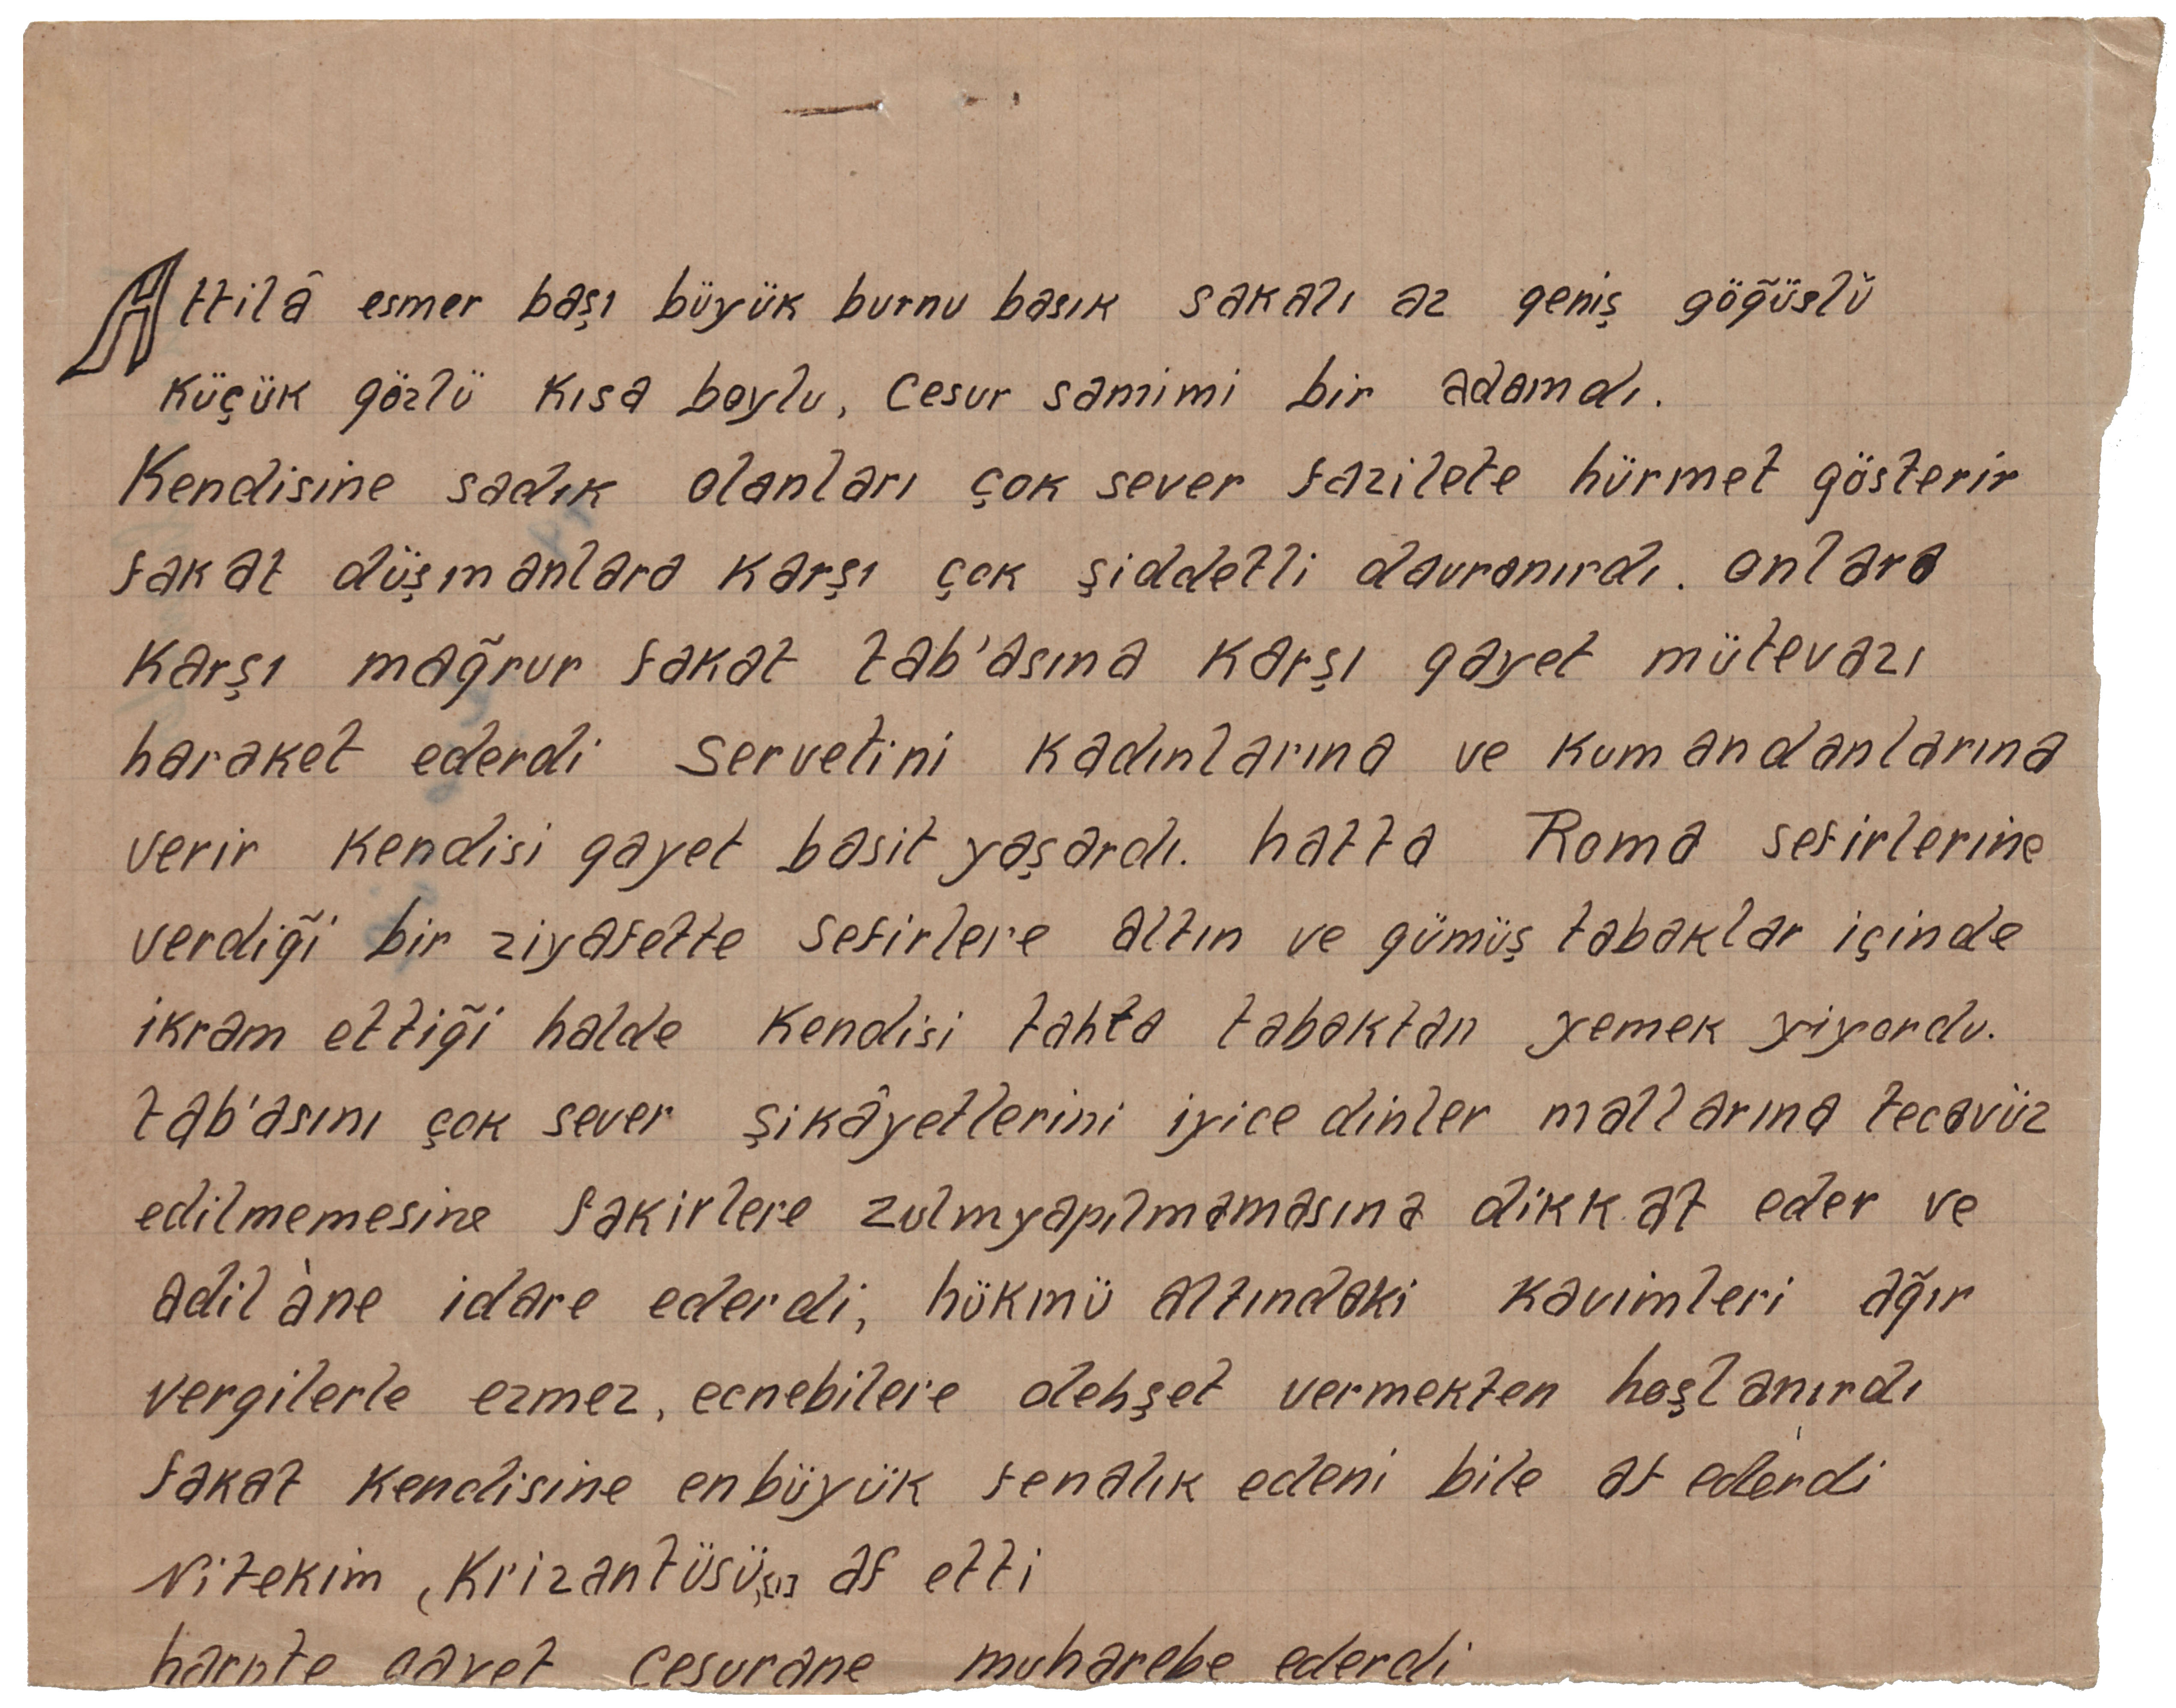 Attilâ esmer başı büyük burnu basık sakalı az geniş göğüslü
küçük gözlü kısa boylu, cesur samimi bir adamdı.
Kendisine sadık olanları çok sever fazilete hürmet gösterir
fakat düşmanlara karşı çok şiddetli davranırdı. onlara
karşı mağrur fakat tab'asına karşı gayet mütevazı
haraket ederdi Servetini kadınlarına ve kumandanlarına
verir kendisi gayet basit yaşardı. hatta Roma sefirlerine
verdiği bir ziyafette sefirlere altın ve gümüş tabaklar içinde
ikram ettiği halde kendisi tahta tabaktan yemek yiyordu.
tab'asını çok sever şikâyetlerini iyice dinler mallarına tecavüz
edilmemesine fakirlere zulmyapılmamasına dikkat eder ve
adilàne idare ederdi, hükmü altındaki kavimleri ağır
vergilerle ezmez, ecnebilere dehşet vermekten hoşlanırdı
fakat kendisine enbüyük fenalık edeni bile af ederdi
Nitekim (Krizantüsü af etti
harpte gayet cesurane muharebe ederdi